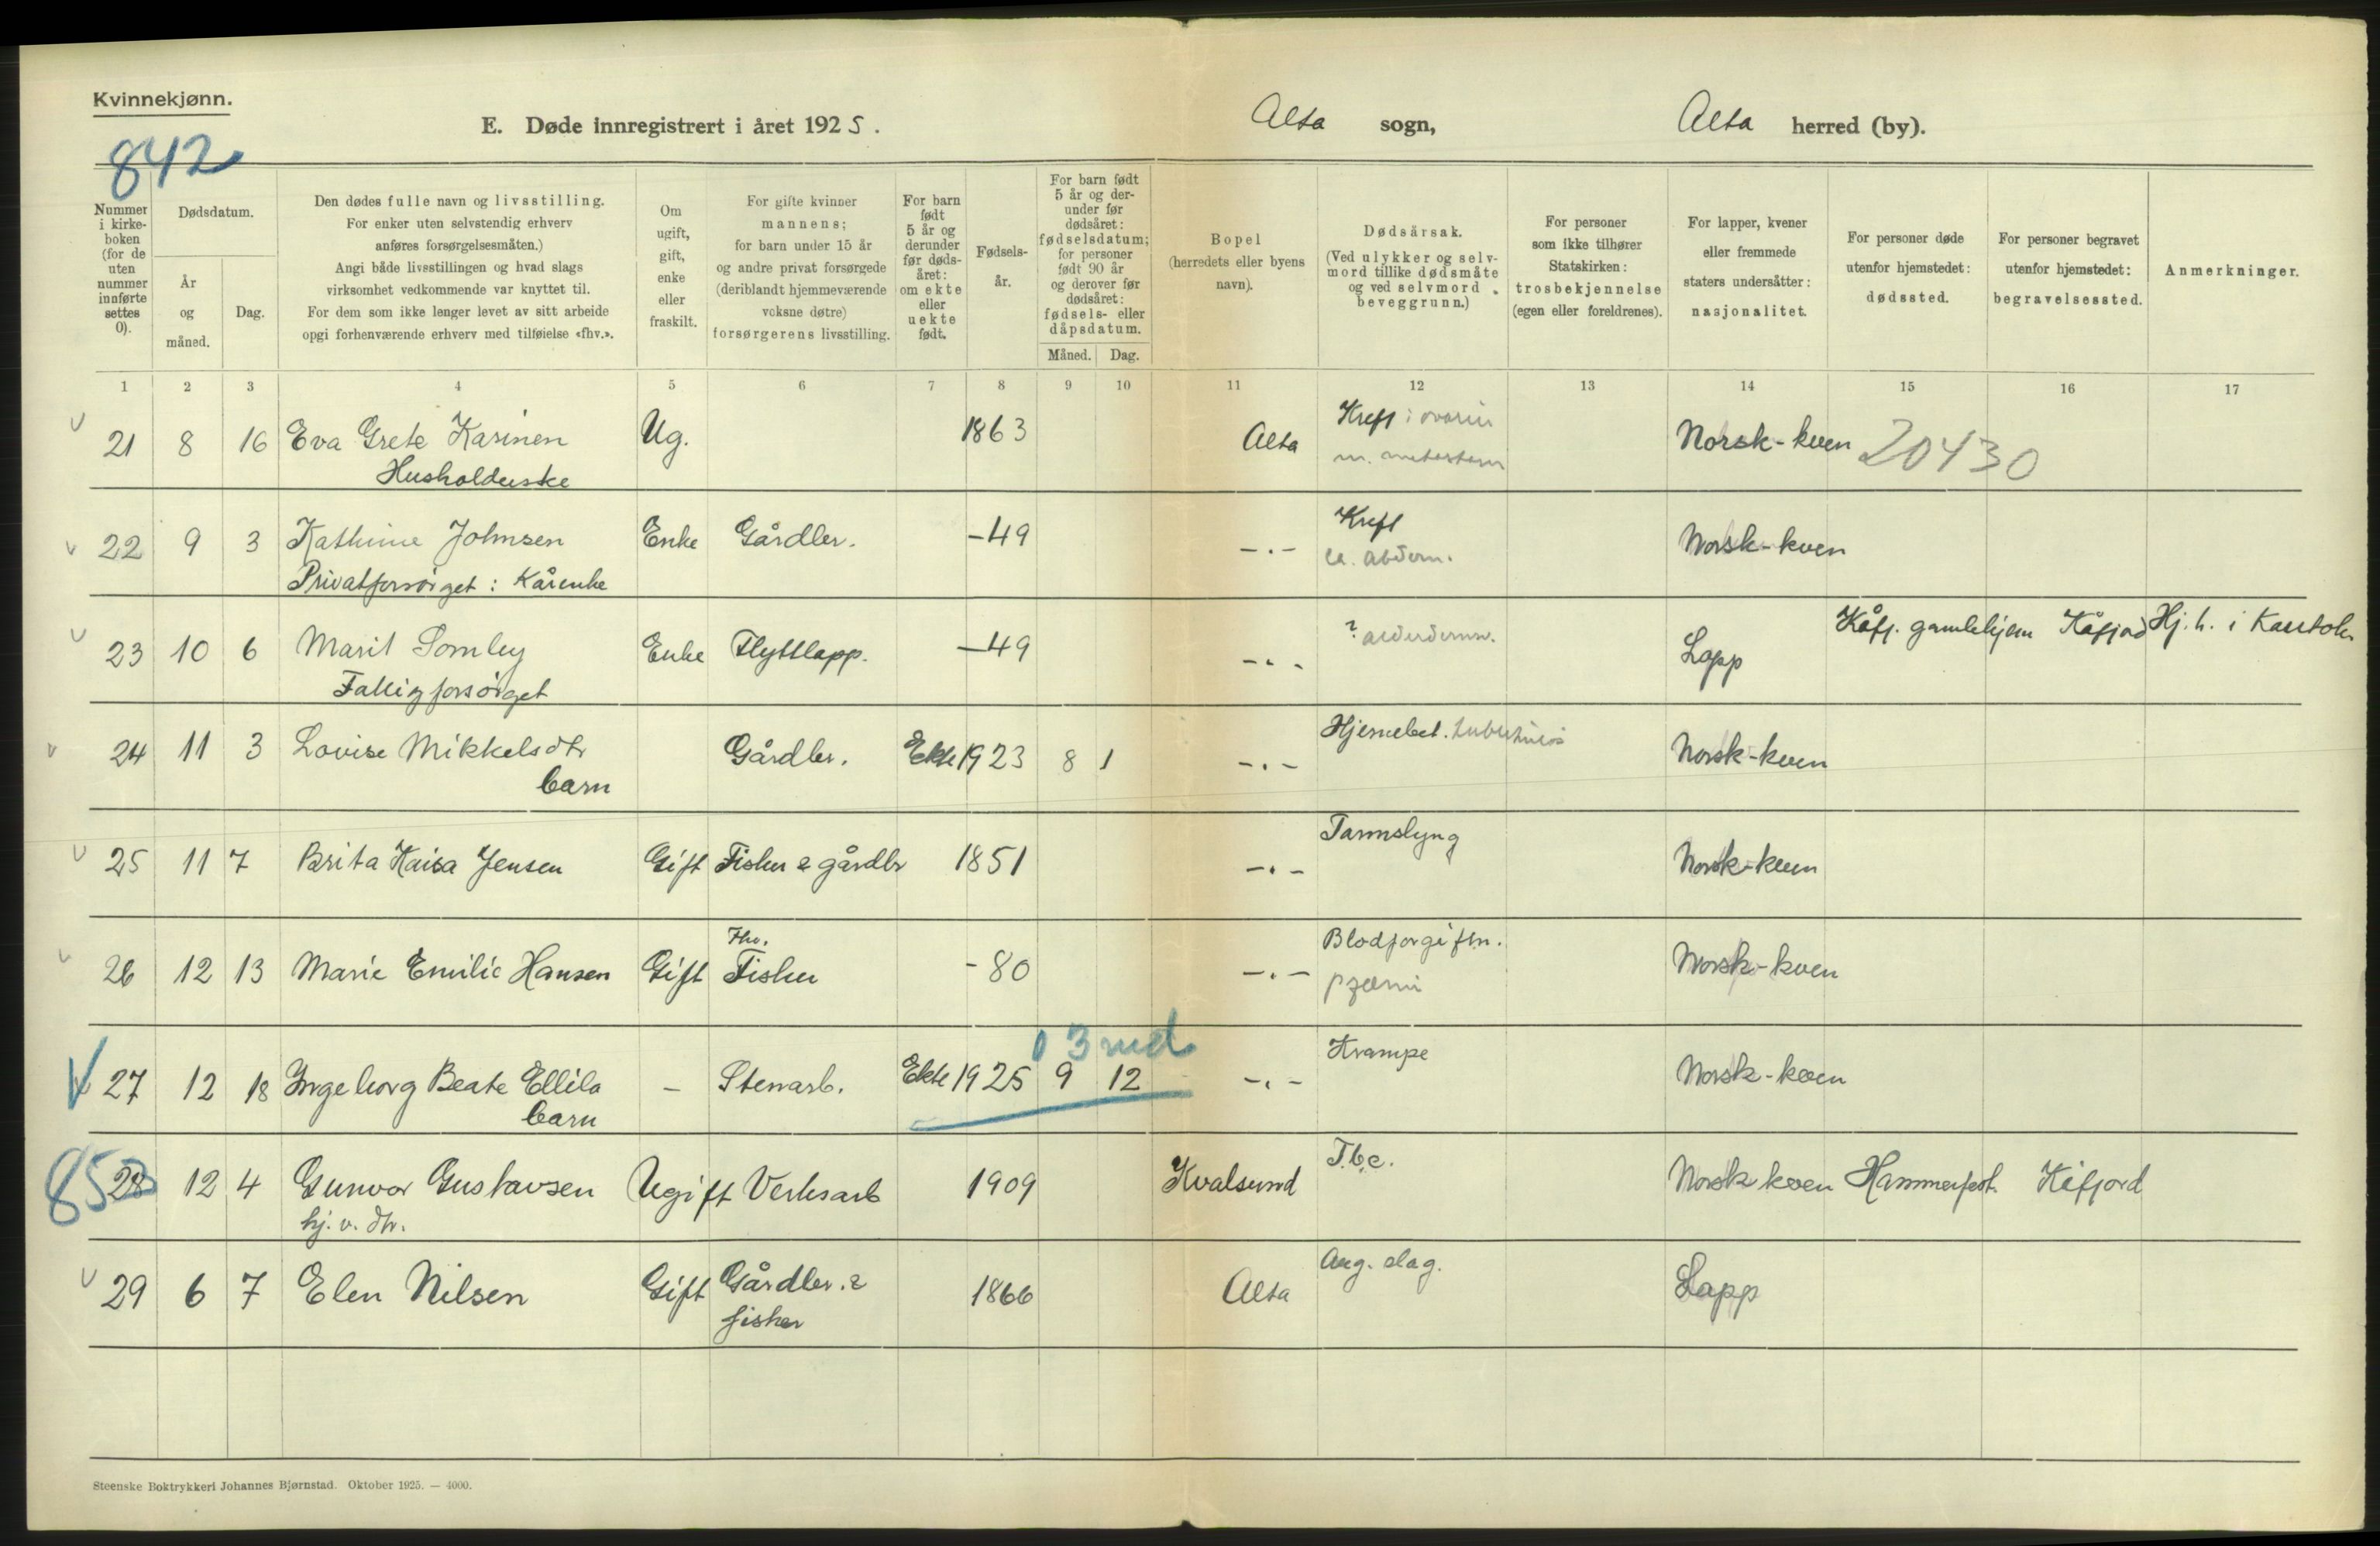 Kvinnekjønn.
E. Døde innregistrert i året 1925.
Alta sogn, Alta herred (by).
842
Nummer i kirkeboken (for de uten nummer innførte settes 0).
Dødsdatum.
År og måned.
Dag.
Den dødes fulle navn og livsstilling.
For enker uten selvstendig erhverv
anføres forsørgelsesmåten.)
Angi både livsstillingen og hvad slags
virksomhet vedkommende var knyttet til.
For dem som ikke lenger levet av sitt arbeide
opgi forhenværende erhverv med tilføielse «fhv.».
Om ugift, gift, enke eller fraskilt.
For gifte kvinner
mannens;
for barn under 15 år
og andre privat forsørgede
(deriblandt hjemmeværende
voksne døtre)
forsørgerens livsstilling.
For barn født 5 år og derunder før dødsåret: om ekte eller uekte født.
Fødselsår.
For barn født 5 år og derunder før dødsåret: fødselsdatum; for personer født 90 år og derover før dødsåret: fødsels- eller dåpsdatum.
Måned. Dag.
Bopel
(herredets eller byens
navn).
Dødsårsak.
(Ved ulykker og selv-
mord tillike dødsmåte
og ved selvmord
beveggrunn.)
For personer
som ikke tilhører
Statskirken:
trosbekjennelse
(egen eller foreldrenes).
For lapper, kvener
eller fremmede
staters undersåtter:
nasjonalitet.
For personer døde
utenfor hjemstedet:
dødssted.
For personer begravet
utenfor hjemstedet:
begravelsessted.
Anmerkninger.
1 2 3 4 5 6 7 8 9 10 11 12 13 14 15 16 17
v 21 8 16 Eva Grete Karinen Ug. 1863 Alta Kreft i ovarie Norsk-kven 20430
Husholderske
v 22 9 3 Kathrine Johnsen Enke Gårdbr. -49 -"- Kreft Norsk-kven
Privatforsörget: Kårenke ca. abdom.
v 23 10 6 Marit Somby Enke Flyttlapp. -49 -"- ? Lapp Kåfj. gamlehjem Kåfjord Hj. h. i Kautok.
Fattigforsörget
v 24 11 3 Lovise Mikkelsdtr Gårdbr. Ekte 1923 8 1 -"- Hjernebet. Norsk-kven
barn
v 25 11 7 Brita Kaisa Jensen Gift Fisker & gårdbr 1851 -"- Tarmslyng Norsk-kven
v 26 12 13 Marie Emilie Hansen Gift Fhv. Fisker -80 -"- Blodforgiftn. Norsk-kven
pyæmi
0 3 md
v 27 12 18 Ingeborg Beate Ellila - Stenarb. Ekte 1925 9 12 -"- Krampe Norsk-kven
barn
852 28 12 4 Gunvor Gustavsen Ugift Verksarb 1909 Kvalsund T.b.c. Norsk kven Hammerfest. Kåfjord
hj. v. dtr.
v 29 6 7 Elen Nilsen Gift Gårdbr. & 1866 Alta Aug. slag. Lapp
fisker
Steenske Boktrykkeri Johannes Bjørnstad. Oktober 1925. — 4000.